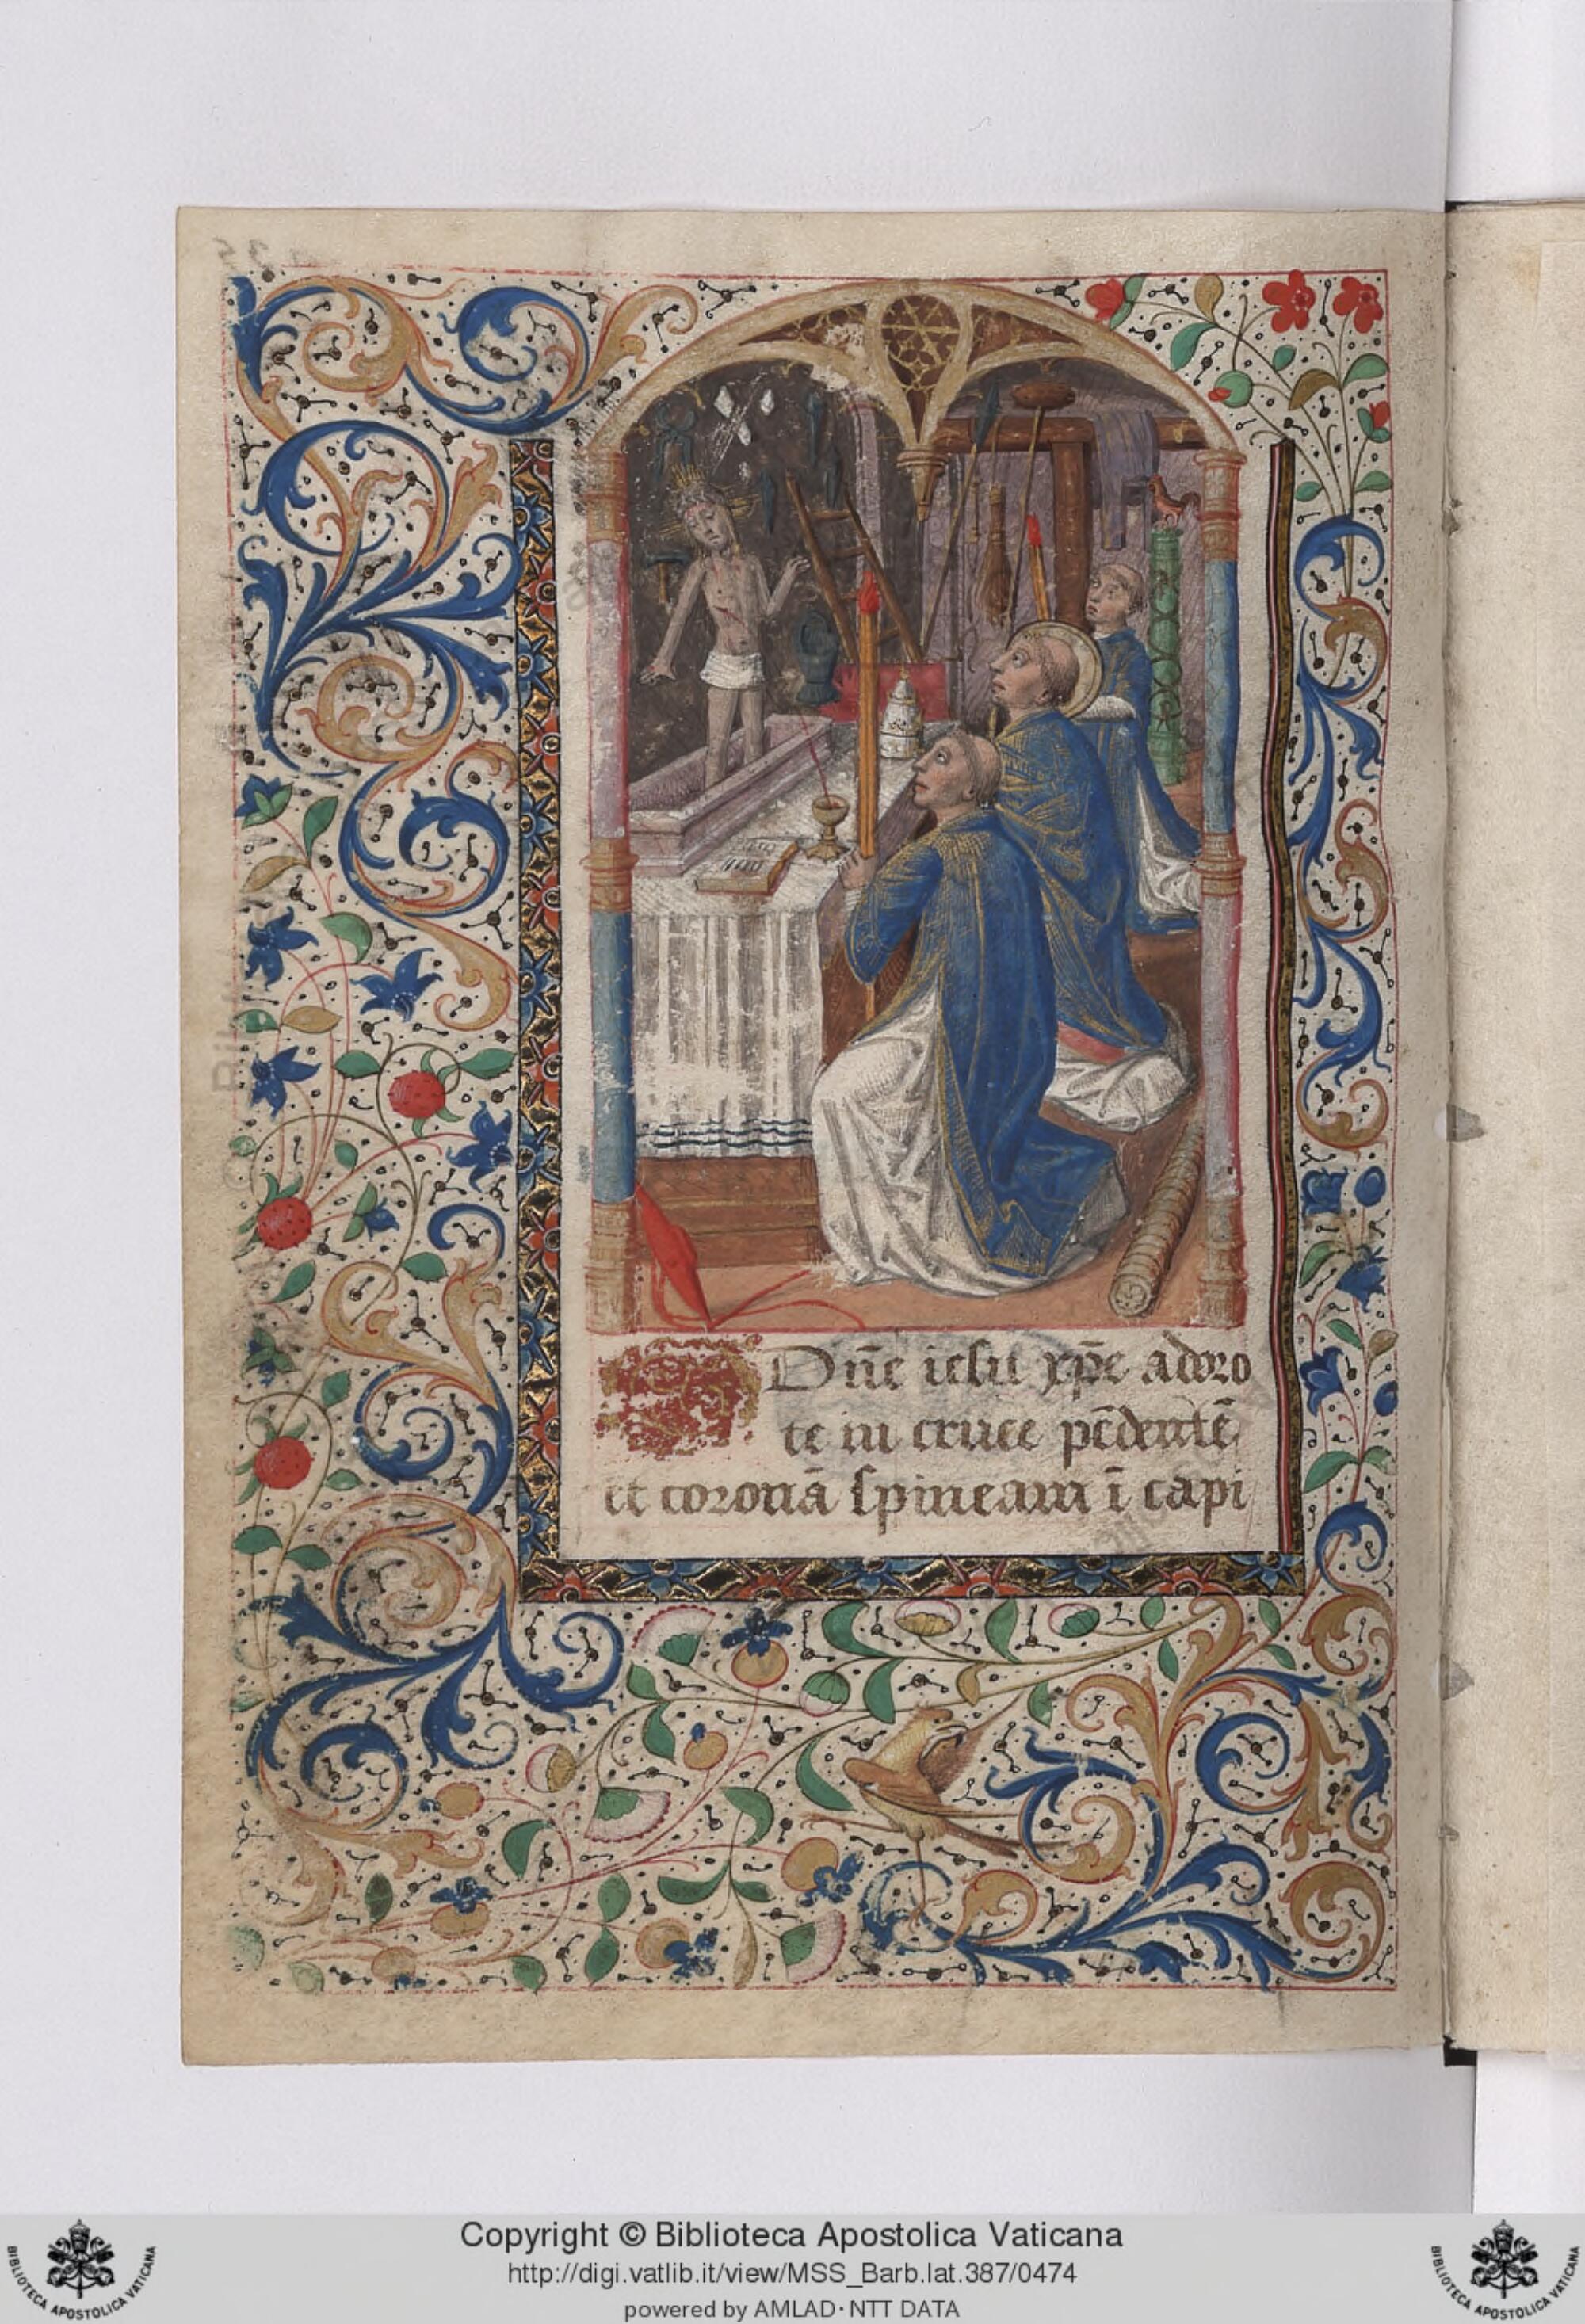 Dñe iesu xp̄e adoro
te in cruce pēdentē
et coronā spineam ī capi
Copyright © Biblioteca Apostolica Vaticana
http://digi.vatlib.it/view/MSS_Barb.lat.387/0474
powered by AMLAD·NTT DATA
BIBLIOTECA APOSTOLICA VATICANA
BIBLIOTECA APOSTOLICA VATICANA